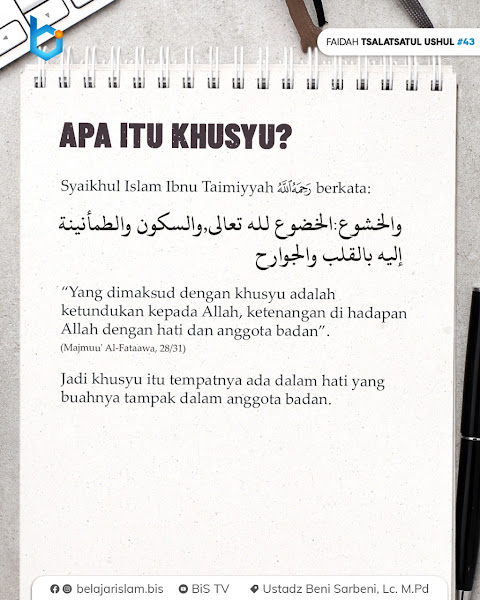 FAIDAH TSALATSATUL USHUL #43
APA ITU KHUSYU?
Syaikhul Islam Ibnu Taimiyyah رحمه الله berkata:
والخشوع:الخضوع لله تعالى,والسكون والطمأنينة
إليه بالقلب والجوارح
“Yang dimaksud dengan khusyu adalah
ketundukan kepada Allah, ketenangan di hadapan
Allah dengan hati dan anggota badan”.
(Majmuu' Al-Fataawa, 28/31)
Jadi khusyu itu tempatnya ada dalam hati yang
buahnya tampak dalam anggota badan.
belajarislam.bis BiS TV Ustadz Beni Sarbeni, Lc. M.Pd